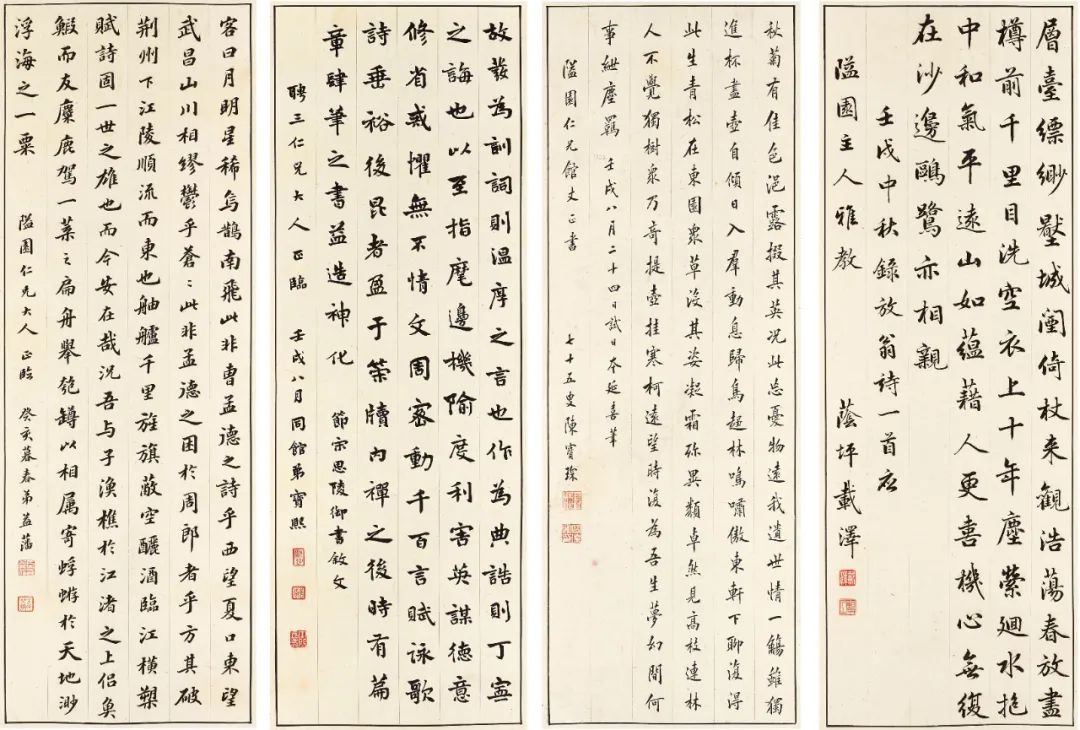 層臺縹緲壓城闉倚杖来觀浩蕩春放盡
樽前千里目洗空衣上十年塵縈廻水抱
中和氣平遠山如蘊藉人更喜機心無復
在沙邊鷗鷺亦相親
壬戌中秋錄放翁詩一首应
隘園主人雅教 蔭坪載澤
秋菊有佳色浥露掇其英況此忘憂物遠我遺世情一觴雖獨
進杯盡壺自傾日入羣動息歸鳥趨林鳴嘯傲東軒下聊復得
此生青松在東園衆草沒其姿凝霜殄異類卓然見高枝連林
人不覺獨樹衆乃奇提壺挂寒柯遠望時復為吾生夢幻間何
事紲塵羈 壬戌八月二十四日試日本延喜筆
隘園仁兄館丈正書 七十五叟陳寶琛
故發為訓詞則温厚之言也作為典誥則丁寧
之誨也以至指麾邊機隃度利害英謀德意
修省戒懼無不情文周密動千百言賦詠歌
詩垂裕後昆者盈于策牘内禪之後時有篇
章肆筆之書益造神化 節宗思陵御書敘文
聘三仁兄大人正臨 壬戌八月同館弟寶熙
客曰月明星稀烏鵲南飛此非曹孟德之詩乎西望夏口東望
武昌山川相繆鬱乎蒼〻此非孟德之困於周郎者乎方其破
荆州下江陵順流而東也舳艫千里旌旗蔽空釃酒臨江橫槊
賦詩固一世之雄也而今安在哉況吾與子漁樵於江渚之上侣魚
鰕而友麋鹿駕一葉之扁舟舉匏罇以相属寄蜉蝣於天地渺
浮海之一粟 隘園仁兄大人正臨 癸亥暮春弟益藩